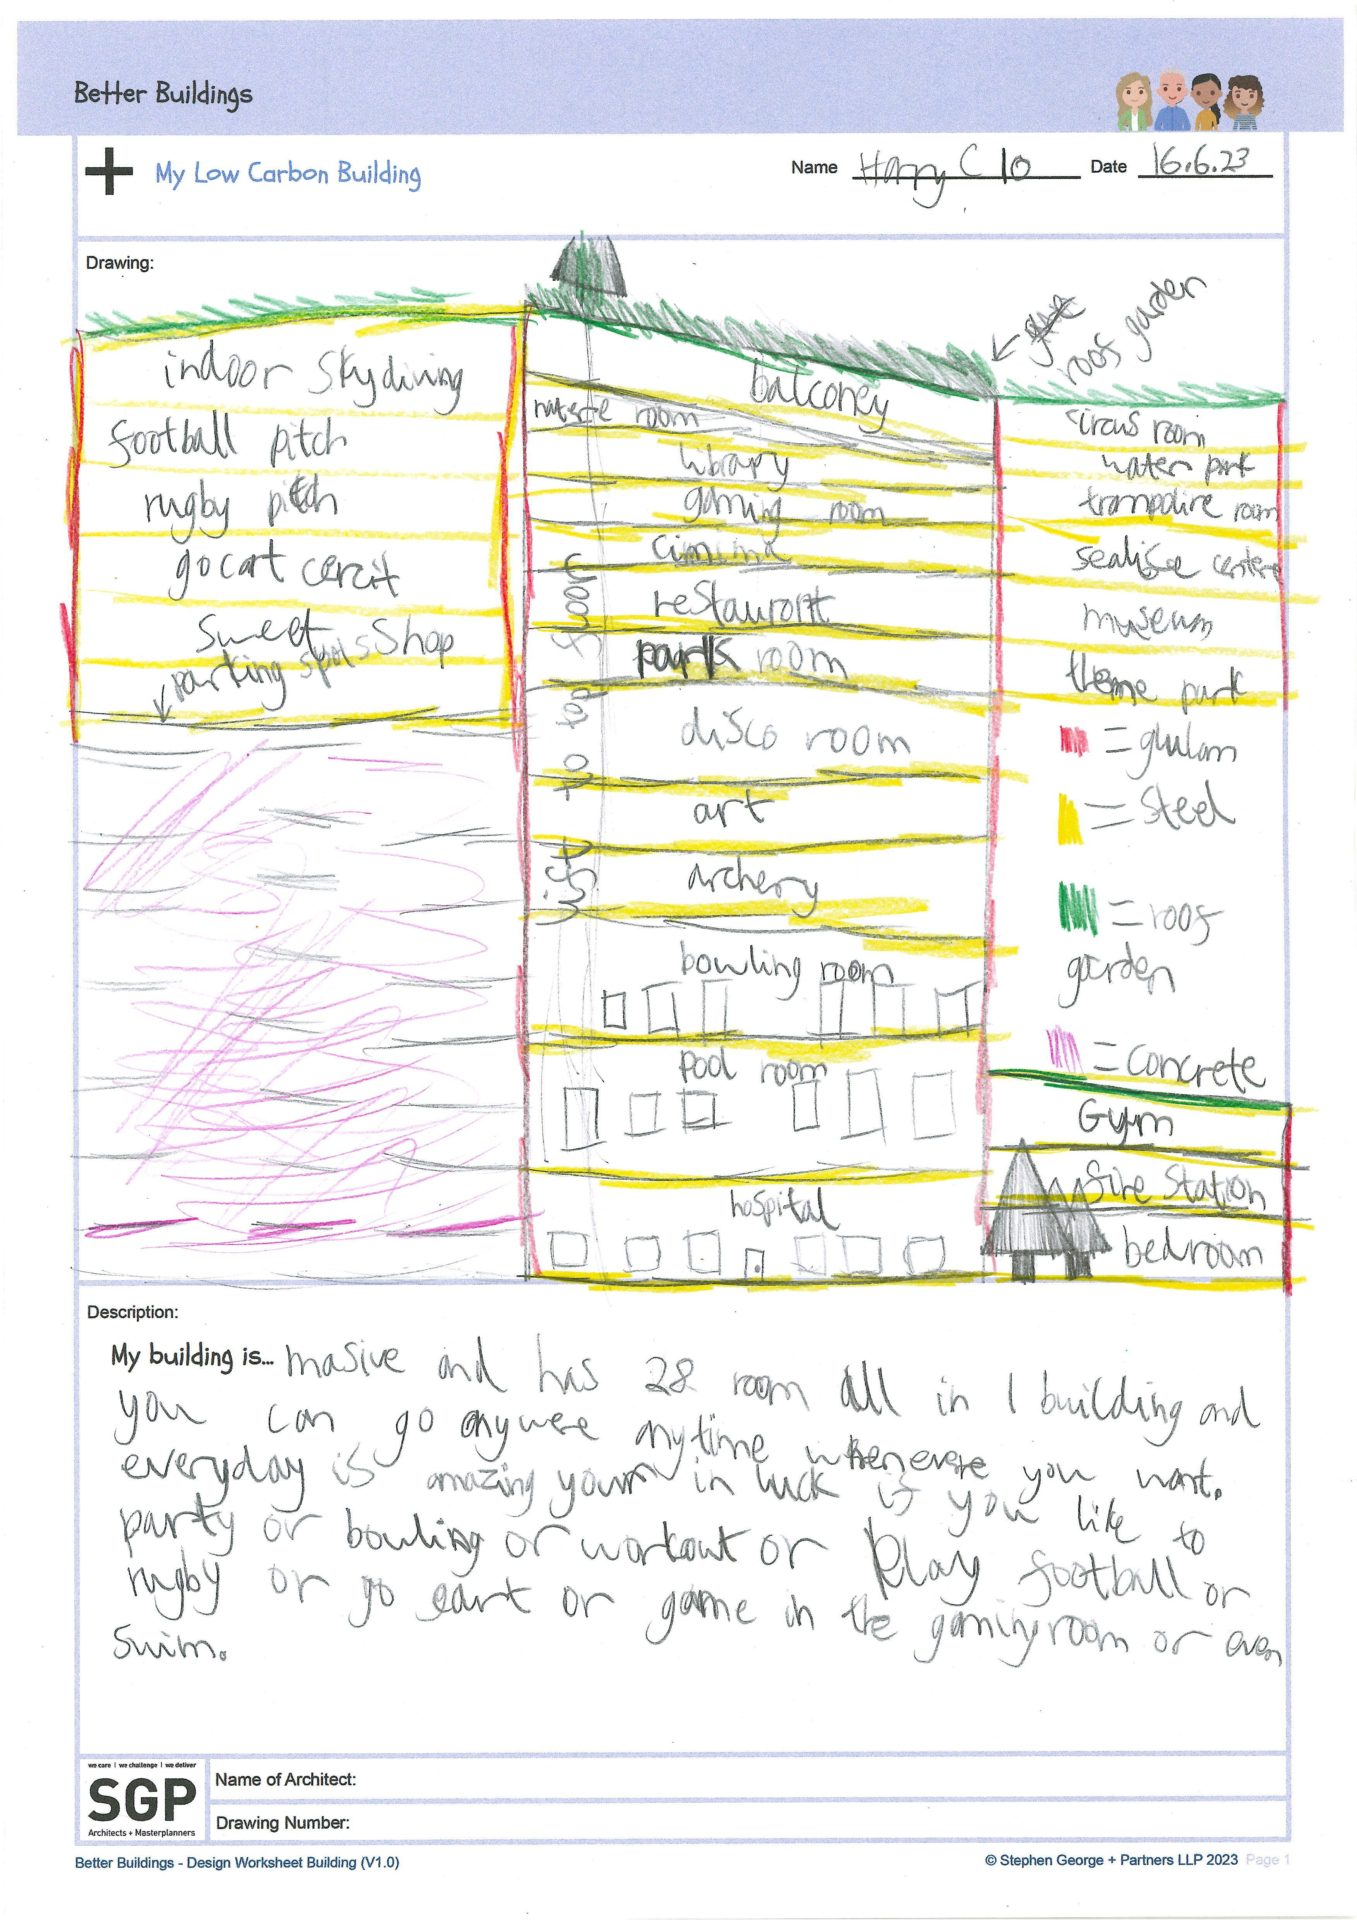 Better Buildings
My Low Carbon Building
Name Harry C 10 Date 16.6.23
Drawing:
roof garden
indoor skydiving
football pitch
rugby pitch
go cart cercit
Sweet Shop
parking spots
balconey
room
library
gaming room
cinima
restauront
park room
disco room
art
archery
bowling room
pool room
hospital
Lift to top floor
circus room
water park
trampoline room
sealife centere
museum
theme park
= glulam
= Steel
= roof
garden
= concrete
Gym
fire Station
bedroom
Description:
My building is... masive and has 28 room all in 1 building and
you can go anywere anytime whenevere you want.
everyday is amazing your in luck if you like to
party or bowling or workout or play football or
rugby or go cart or game in the gaming room or even
swim.
we care | we challenge | we deliver
SGP
Architects + Masterplanners
Name of Architect:
Drawing Number:
Better Buildings - Design Worksheet Building (V1.0)
© Stephen George + Partners LLP 2023 Page 1